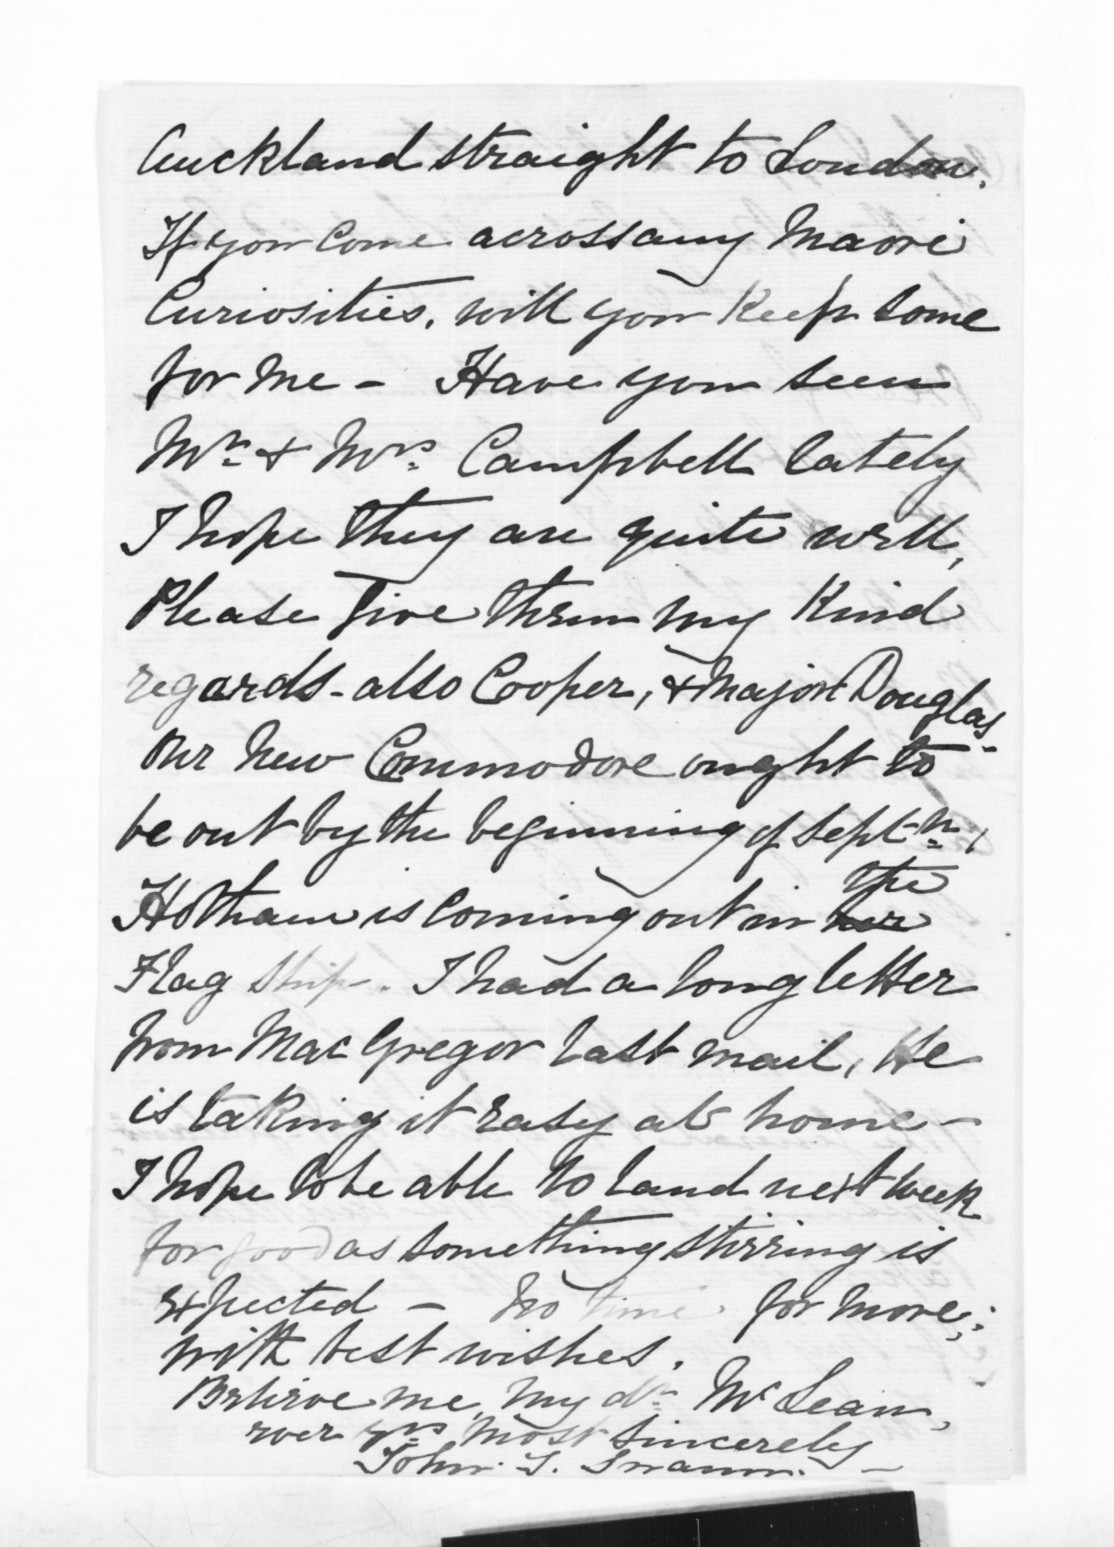 Auckland straight to London.
If you come across any Maori
Curiosities, will you keep some
for me - Have you seen
Mr. & Mrs. Campbell lately
I hope they are quite well,
Please give them my kind
regards - also Cooper, & Major Douglas -
Our new Commodore ought to
be out by the beginning of Septr.,
the
Hotham is coming out in her
Flag ship. I had a long letter
from MacGregor last mail, He
is taking it easy at home -
I hope to be able to land next week
for good as something stirring is
expected - No time for more,
with best wishes.
Believe me, my dr. McLean,
ever yrs most sincerely
John. T. Swann. -